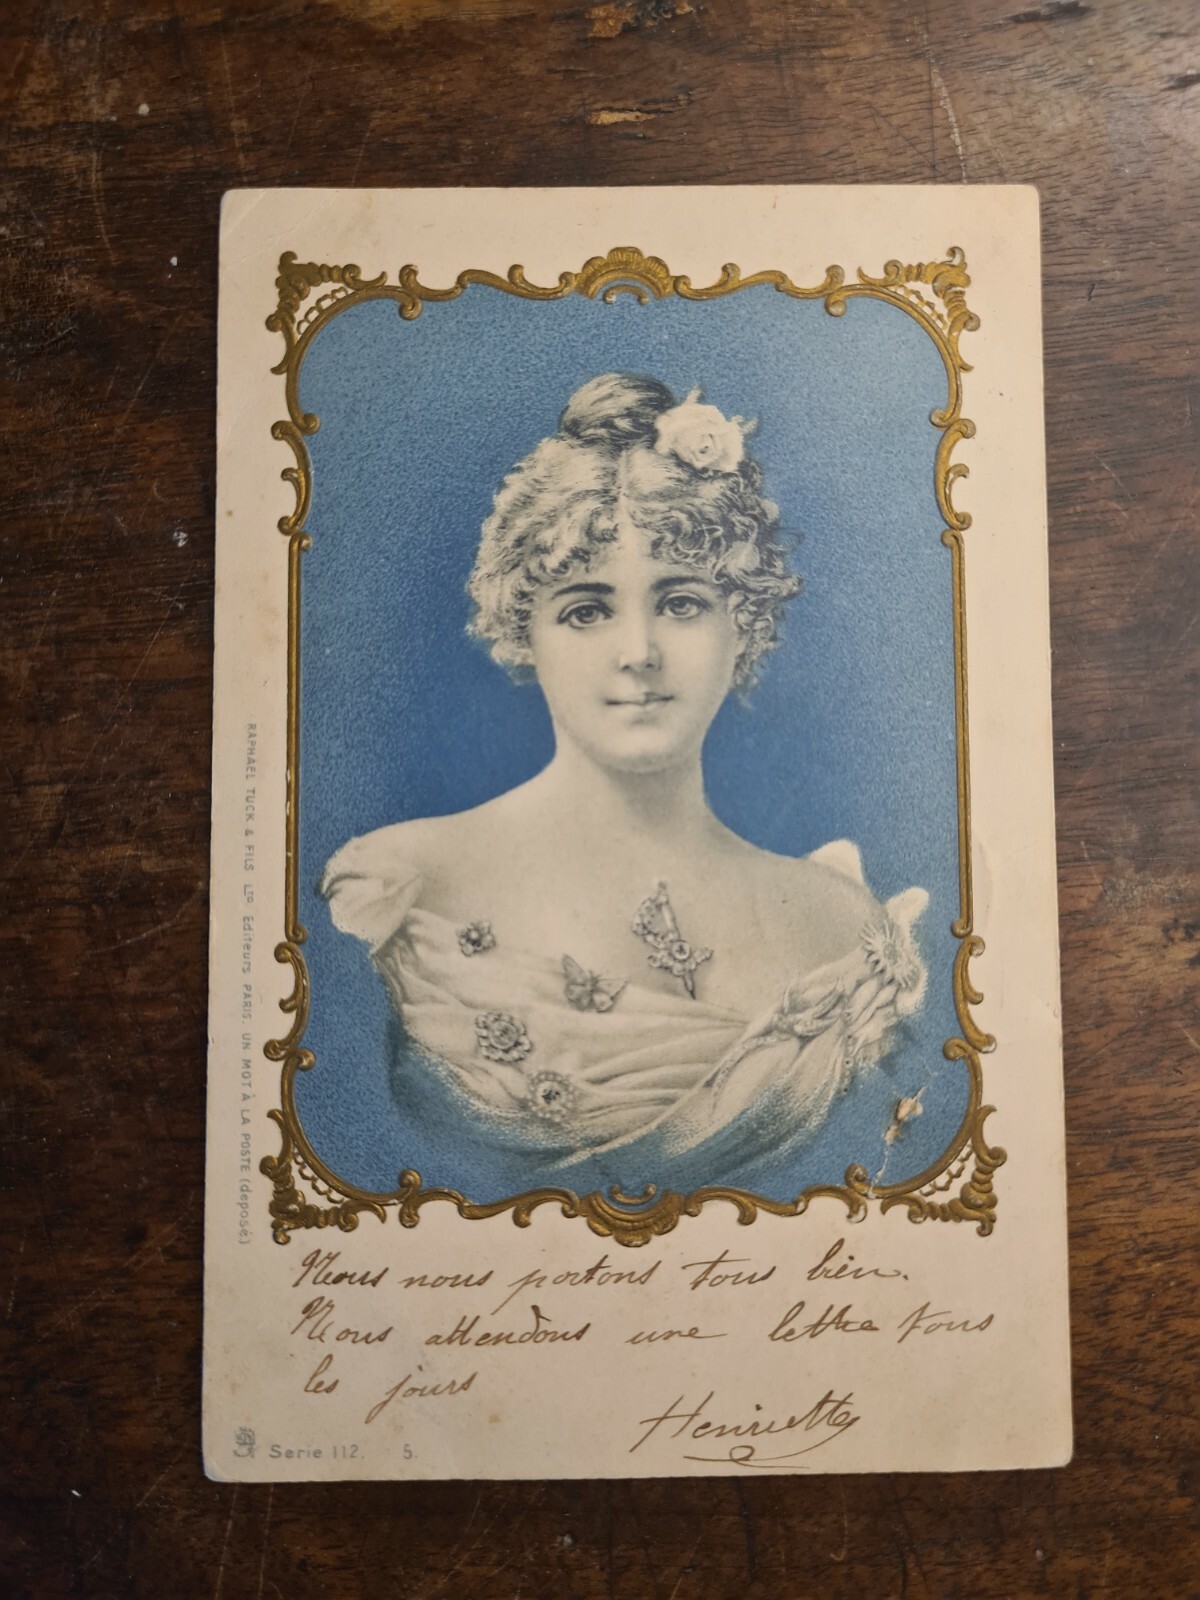 RAPHAEL TUCK & FILS LTD. Editeurs PARIS. UN MOT À LA POSTE (deposé)
Nous nous portons tous bien.
Nous attendons une lettre tous
les jours
Henriette
Serie 112. 5.